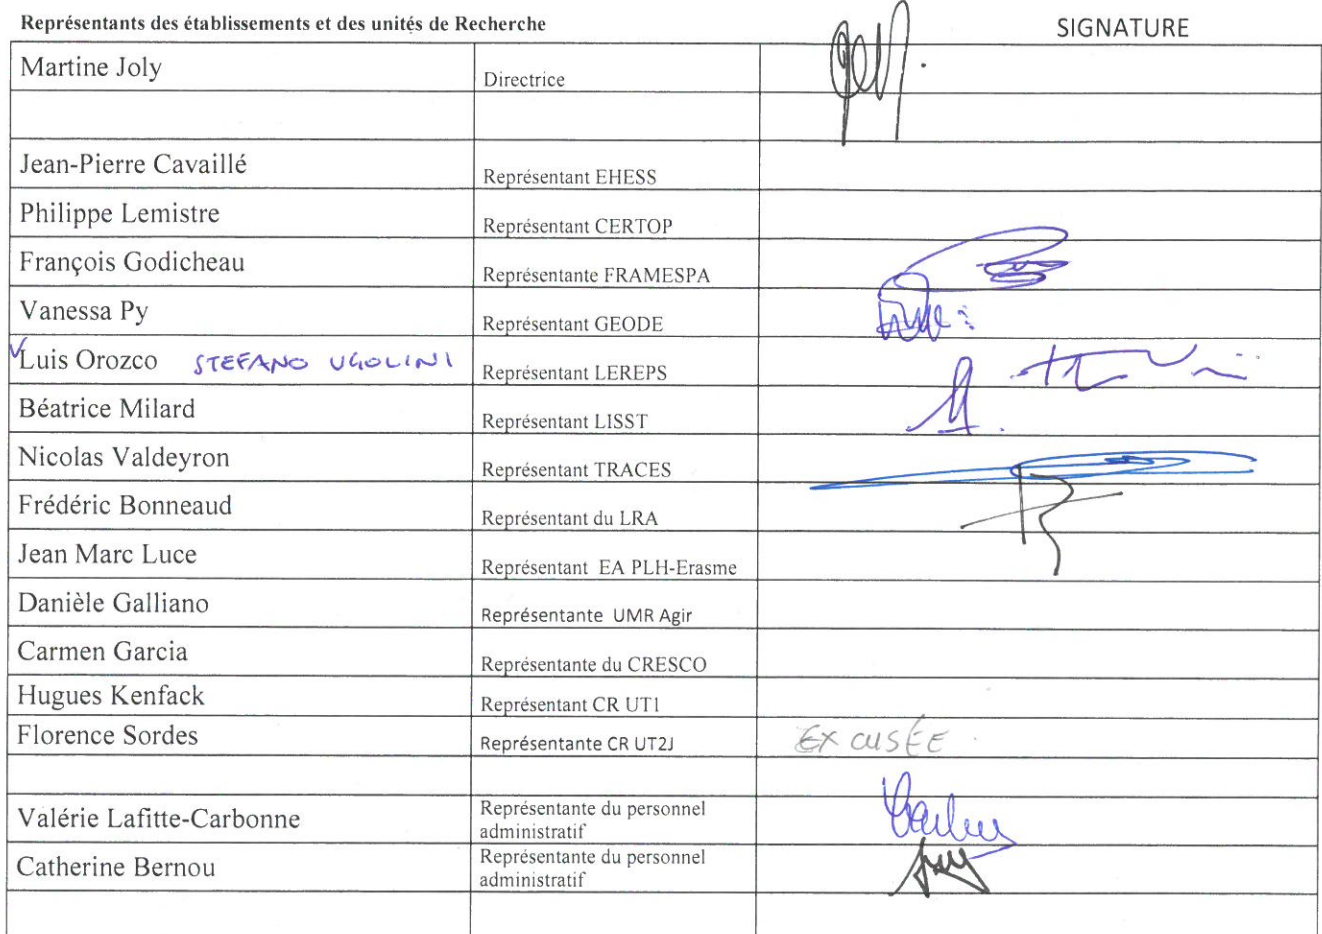 Représentants des établissements et des unités de Recherche SIGNATURE
Martine Joly Directrice
Jean-Pierre Cavaillé Représentant EHESS
Philippe Lemistre Représentant CERTOP
François Godicheau Représentante FRAMESPA
Vanessa Py Représentant GEODE
Luis Orozco STEFANO UGOLINI Représentant LEREPS
Béatrice Milard Représentant LISST
Nicolas Valdeyron Représentant TRACES
Frédéric Bonneaud Représentant du LRA
Jean Marc Luce Représentant EA PLH-Erasme
Danièle Galliano Représentante UMR Agir
Carmen Garcia Représentante du CRESCO
Hugues Kenfack Représentant CR UT1
Florence Sordes Représentante CR UT2J EXCUSÉE
Valérie Lafitte-Carbonne Représentante du personnel
administratif
Catherine Bernou Représentante du personnel
administratif